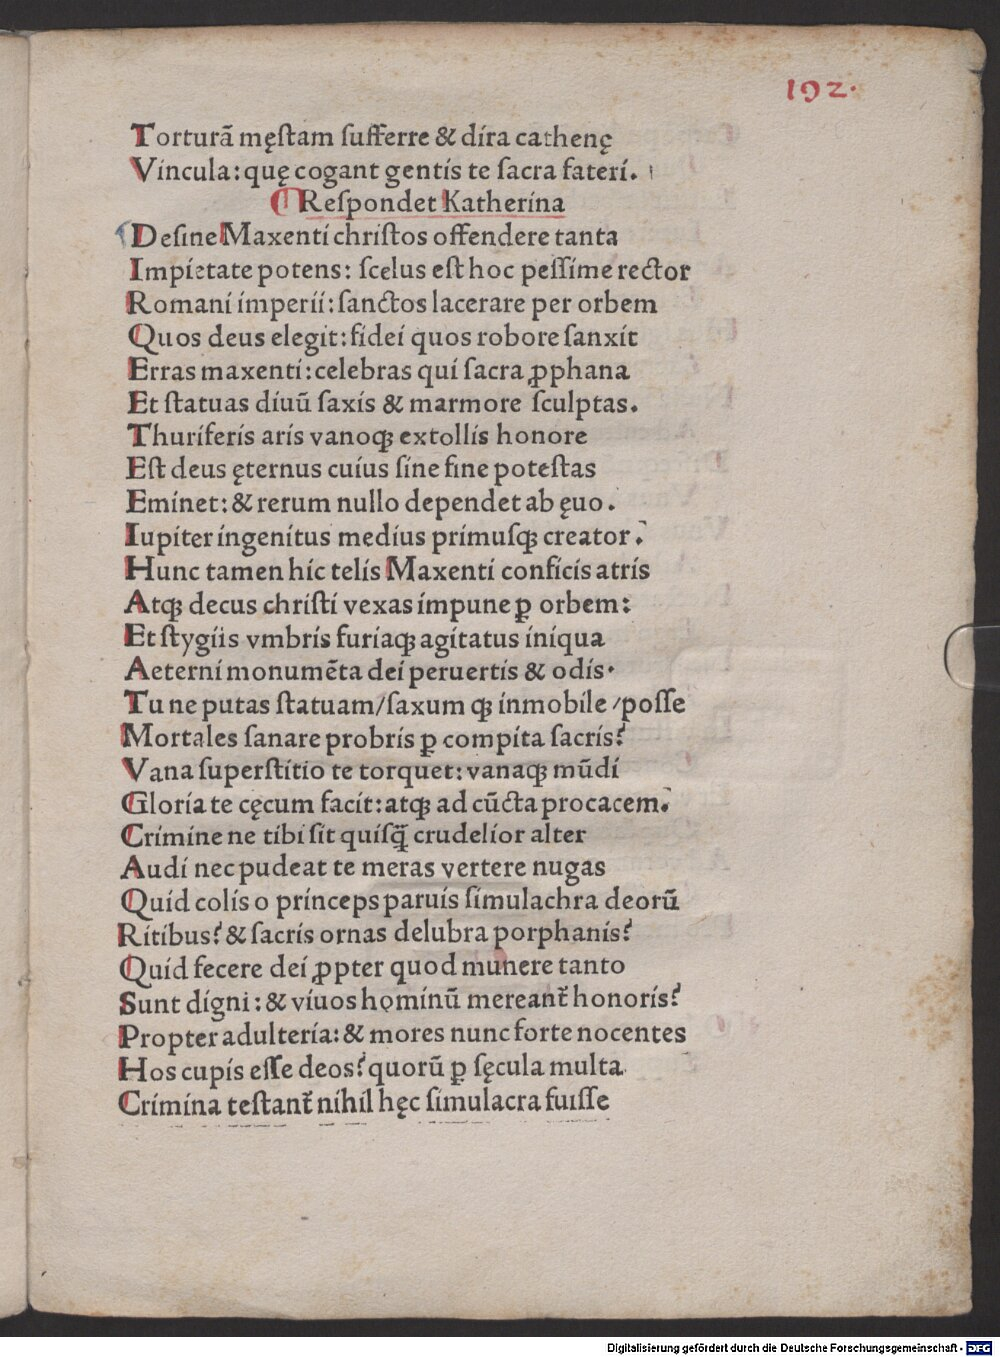 192.
Torturā męſtam ſufferre & dira cathenę
Vincula: quę cogant gentis te ſacra fateri.
Reſpondet Katherina
Deſine Maxenti chriſtos offendere tanta
Impietate potens: ſcelus eſt hoc peſſime rector
Romani imperii: ſanctos lacerare per orbem
Quos deus elegit: fidei quos robore ſanxit
Erras maxenti: celebras qui ſacra ꝓphana
Et ſtatuas diuū ſaxis & marmore ſculptas.
Thuriferis aris vanoqꝫ extollis honore
Eſt deus ęternus cuius ſine fine poteſtas
Eminet: & rerum nullo dependet ab ęuo.
Iupiter ingenitus medius primuſqꝫ creator.
Hunc tamen hic telis Maxenti conficis atris
Atqꝫ decus chriſti vexas impune ꝑ orbem:
Et ſtygiis vmbris furiaqꝫ agitatus iniqua
Aeterni monumēta dei peruertis & odis.
Tu ne putas ſtatuam/ſaxum qꝫ inmobile /poſſe
Mortales ſanare probris ꝑ compita ſacris?
Vana ſuperſtitio te torquet: vanaqꝫ mūdi
Gloria te cęcum facit: atqꝫ ad cūcta procacem.
Crimine ne tibi ſit quiſq̄ crudelior alter
Audi nec pudeat te meras vertere nugas
Quid colis o princeps paruis ſimulachra deorū
Ritibus? & ſacris ornas delubra porphanis?
Quid fecere dei ꝓpter quod munere tanto
Sunt digni: & viuos hominū mereant̄ honoris?
Propter adulteria: & mores nunc forte nocentes
Hos cupis eſſe deos? quorū ꝑ ſęcula multa
Crimina teſtant̄ nihil hęc ſimulacra fuiſſe
Digitalisierung gefördert durch die Deutsche Forschungsgemeinschaft - DFG